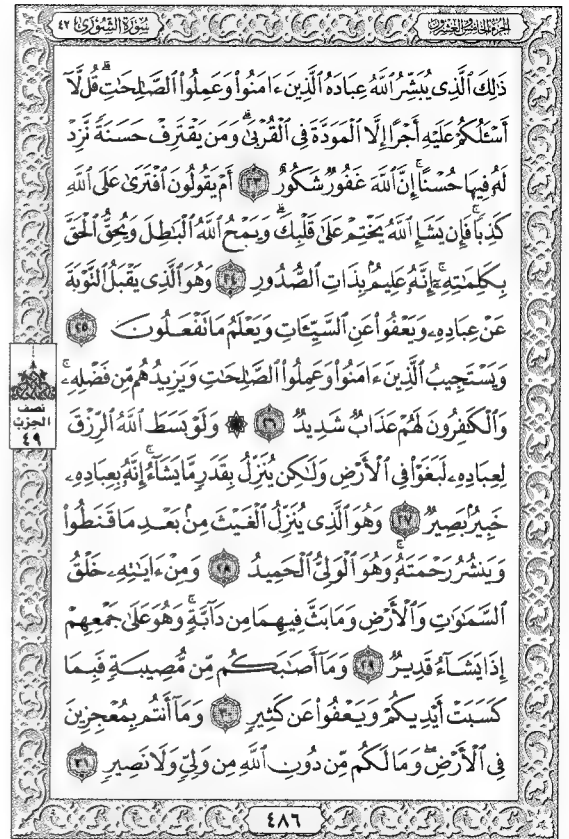 سُورَةُ الشُّورَىٰ ٤٢
الجزء الخامس والعشرون
ذَٰلِكَ ٱلَّذِى يُبَشِّرُ ٱللَّهُ عِبَادَهُ ٱلَّذِينَ ءَامَنُوا۟ وَعَمِلُوا۟ ٱلصَّٰلِحَٰتِ ۗ قُل لَّآ
أَسْـَٔلُكُمْ عَلَيْهِ أَجْرًا إِلَّا ٱلْمَوَدَّةَ فِى ٱلْقُرْبَىٰ ۗ وَمَن يَقْتَرِفْ حَسَنَةً نَّزِدْ
لَهُۥ فِيهَا حُسْنًا ۚ إِنَّ ٱللَّهَ غَفُورٌ شَكُورٌ ٢٣ أَمْ يَقُولُونَ ٱفْتَرَىٰ عَلَى ٱللَّهِ
كَذِبًا ۖ فَإِن يَشَإِ ٱللَّهُ يَخْتِمْ عَلَىٰ قَلْبِكَ ۗ وَيَمْحُ ٱللَّهُ ٱلْبَٰطِلَ وَيُحِقُّ ٱلْحَقَّ
بِكَلِمَٰتِهِۦٓ ۚ إِنَّهُۥ عَلِيمٌۢ بِذَاتِ ٱلصُّدُورِ ٢٤ وَهُوَ ٱلَّذِى يَقْبَلُ ٱلتَّوْبَةَ
عَنْ عِبَادِهِۦ وَيَعْفُوا۟ عَنِ ٱلسَّيِّـَٔاتِ وَيَعْلَمُ مَا تَفْعَلُونَ ٢٥
وَيَسْتَجِيبُ ٱلَّذِينَ ءَامَنُوا۟ وَعَمِلُوا۟ ٱلصَّٰلِحَٰتِ وَيَزِيدُهُم مِّن فَضْلِهِۦ ۚ
وَٱلْكَٰفِرُونَ لَهُمْ عَذَابٌ شَدِيدٌ ٢٦ ۞ وَلَوْ بَسَطَ ٱللَّهُ ٱلرِّزْقَ
لِعِبَادِهِۦ لَبَغَوْا۟ فِى ٱلْأَرْضِ وَلَٰكِن يُنَزِّلُ بِقَدَرٍ مَّا يَشَآءُ ۚ إِنَّهُۥ بِعِبَادِهِۦ
خَبِيرٌۢ بَصِيرٌ ٢٧ وَهُوَ ٱلَّذِى يُنَزِّلُ ٱلْغَيْثَ مِنۢ بَعْدِ مَا قَنَطُوا۟
وَيَنشُرُ رَحْمَتَهُۥ ۚ وَهُوَ ٱلْوَلِىُّ ٱلْحَمِيدُ ٢٨ وَمِنْ ءَايَٰتِهِۦ خَلْقُ
ٱلسَّمَٰوَٰتِ وَٱلْأَرْضِ وَمَا بَثَّ فِيهِمَا مِن دَآبَّةٍ ۚ وَهُوَ عَلَىٰ جَمْعِهِمْ
إِذَا يَشَآءُ قَدِيرٌ ٢٩ وَمَآ أَصَٰبَكُم مِّن مُّصِيبَةٍ فَبِمَا
كَسَبَتْ أَيْدِيكُمْ وَيَعْفُوا۟ عَن كَثِيرٍ ٣٠ وَمَآ أَنتُم بِمُعْجِزِينَ
فِى ٱلْأَرْضِ ۖ وَمَا لَكُم مِّن دُونِ ٱللَّهِ مِن وَلِىٍّ وَلَا نَصِيرٍ ٣١
نصف
الحزب
٤٩
٤٨٦